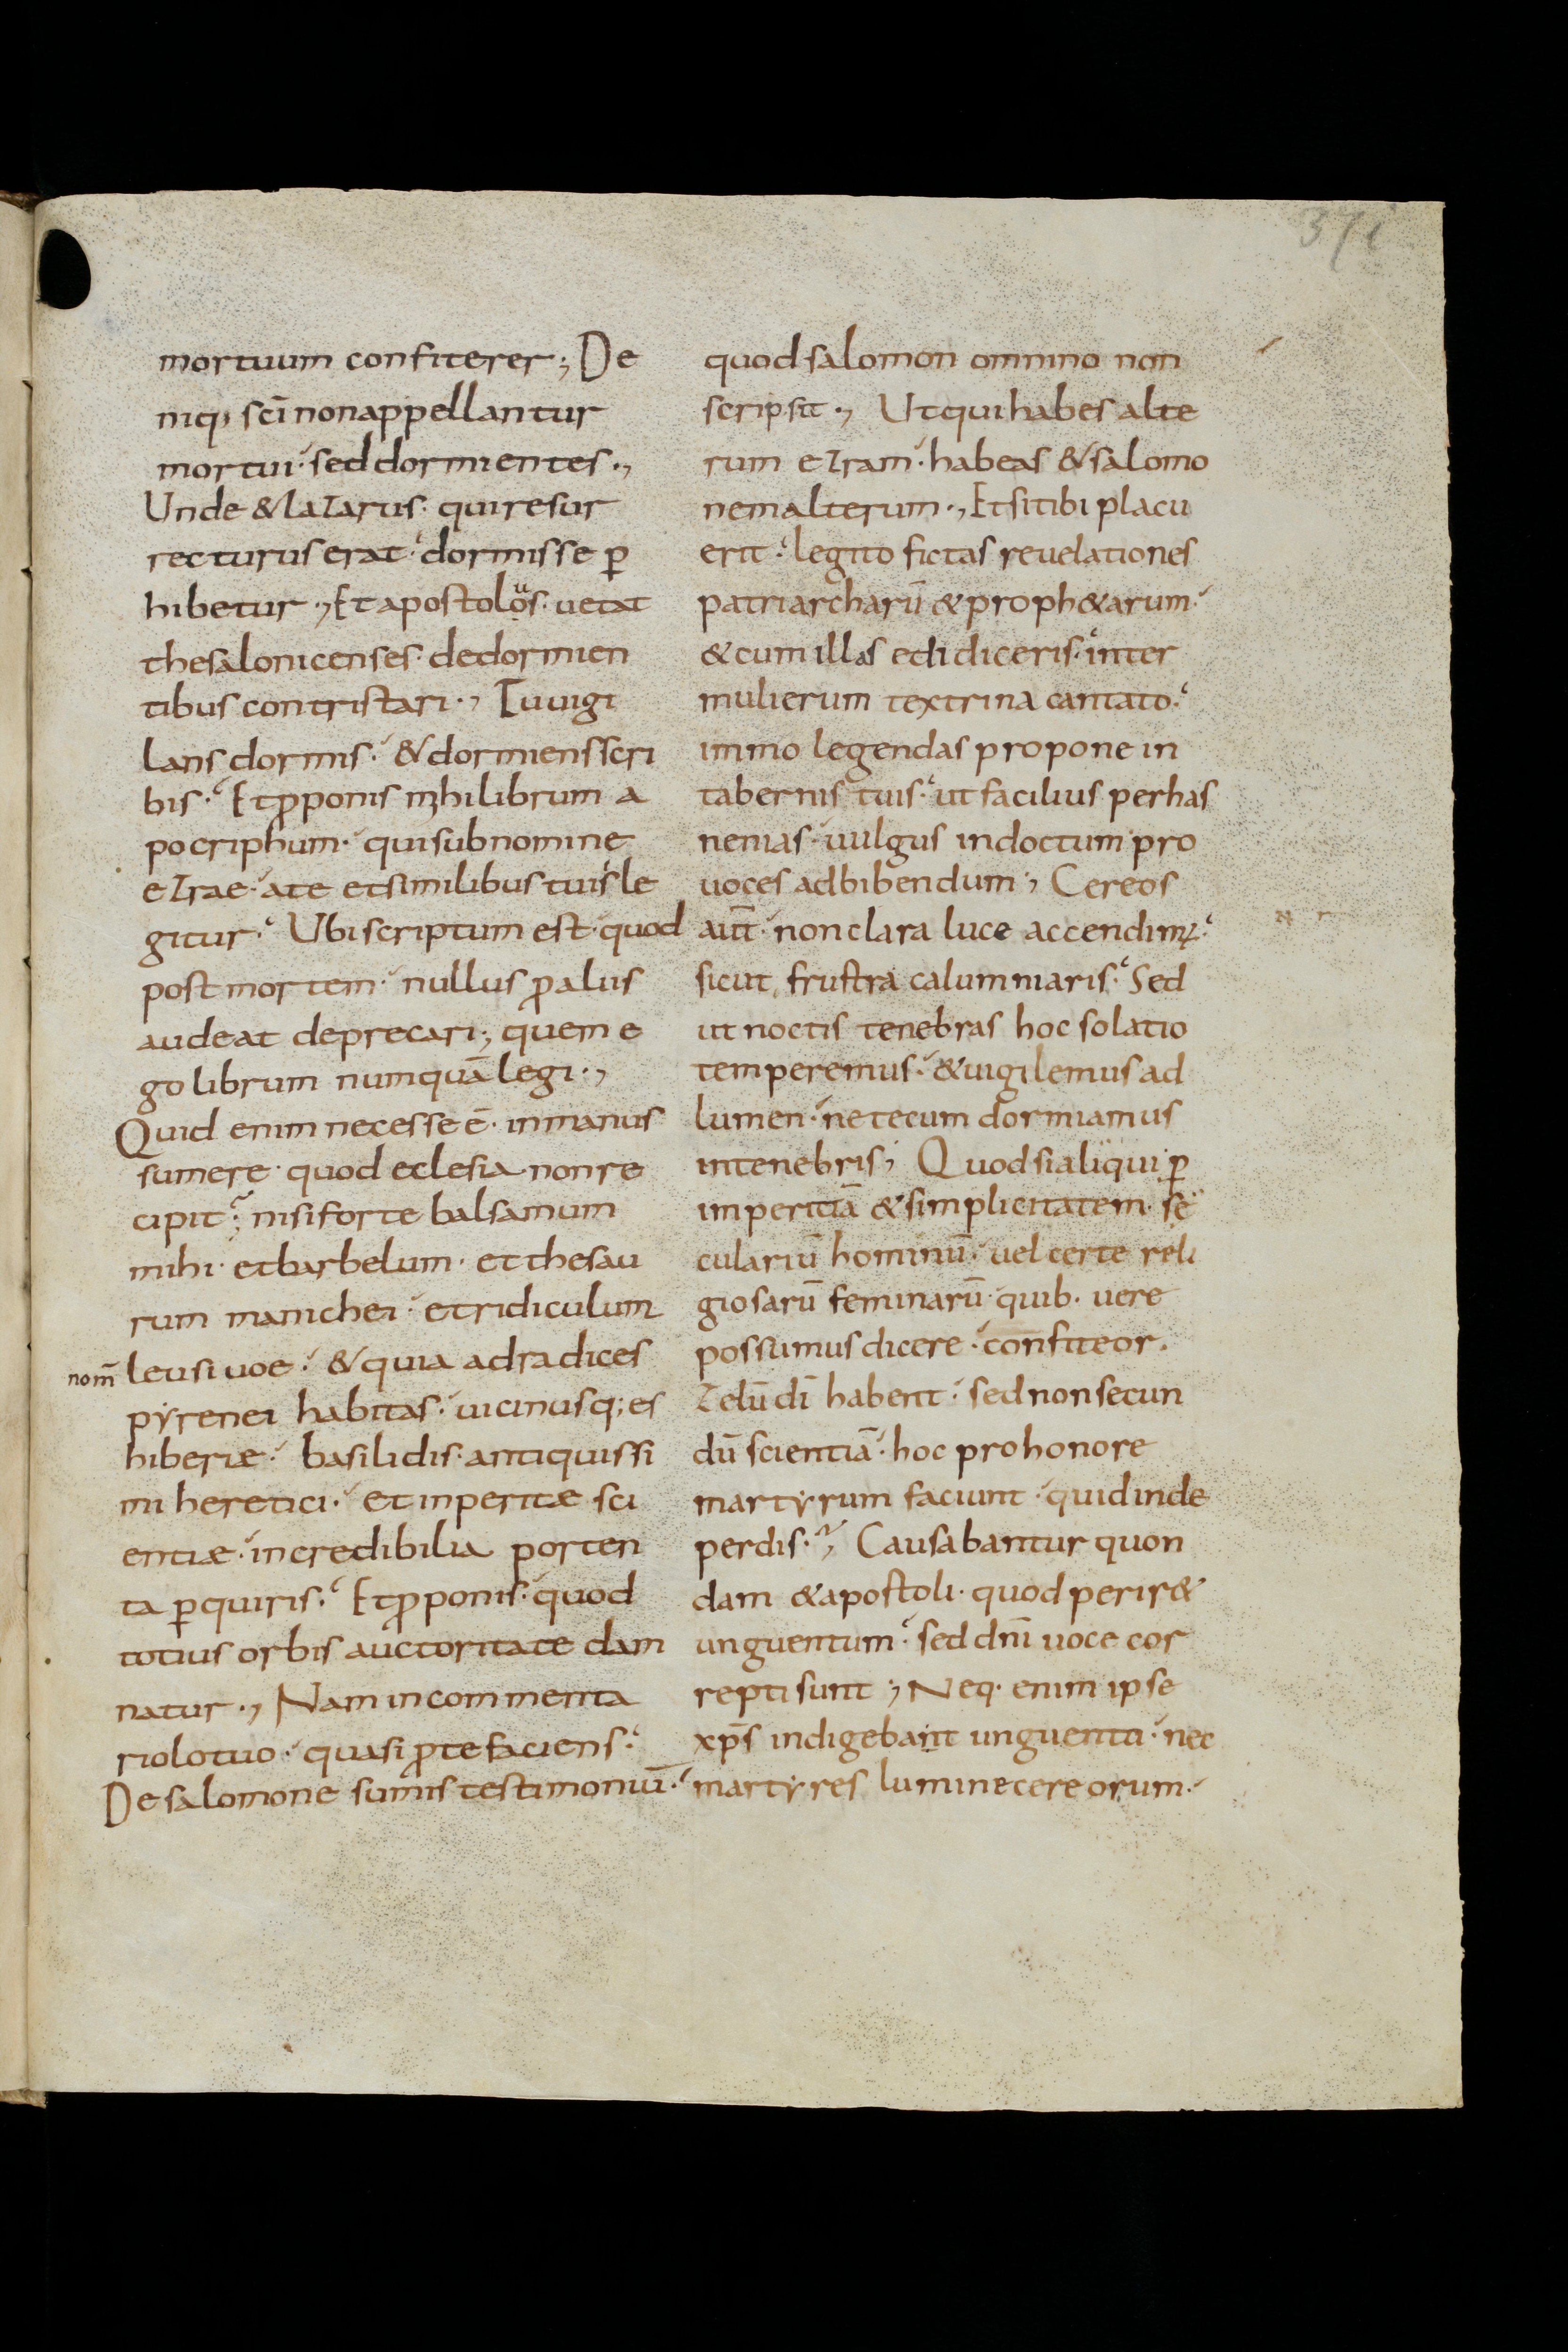 371
mortuum confiterer; De
niq; scī nonappellantur
mortui· sed dormientes·,
Unde & lazarus· qui resur
recturus erat· dormisse ꝑ
hibetur·, Et apostolus· uetat
thesalonicenses· dedormien
tibus contristari·, Tu uigi
lans dormis· & dormiens scri
bis· Et ꝓponis mihi librum a
pocriphum· qui subnomine
ezrae· a te et similibus tuis le
gitur· Ubi scriptum est· quod
post mortem· nullus ꝓ aliis
audeat deprecari; quem e
go librum numquā legi·,
Quid enim necesse ē· in manus
sumere· quod eclesia non re
cipit? nisi forte balsamum
mihi· et barbelum· et thesau
rum manichei· et ridiculum
nom̄ leusiuoe· & quia adradices
pyrenei habitas· uicinusq; es
hiberiæ· basilidis· antiquissi
mi heretici· et inperitæ sci
entiæ· incredibilia porten
ta ꝑquiris· Et ꝓponis· quod
totius orbis auctoritate dam
natur·, Nam in commenta
riolo tuo· quasi ꝓ te faciens·
De salomone sumis testimoniū·
quod salomon omnino non
scripsit·, Ut qui habes alte
rum ezram· habeas & salomo
nem alterum·, Et si tibi placu
erit· legito fictas reuelationes
patriarcharū & proph&arum·
& cum illas edidiceris· inter
mulierum textrina cantato·
immo legendas propone in
tabernis tuis· ut facilius per has
nenias· uulgus indoctum pro
uoces ad bibendum·, Cereos
aut̄· non clara luce accendimꝰ·
sicut frustra calumniaris· Sed
ut noctis tenebras hoc solatio
temperemus· & uigilemus ad
lumen· ne tecum dormiamus
in tenebris; Quod si aliqui ꝑ
imperitiā & simplicitatem· se
culariū hominū· uel certe reli
giosarū feminarū· quib· uere
possumus dicere· confiteor·
Zelū dī habent· sed non secun
dū scientiā· hoc pro honore
martyrum faciunt· quid inde
perdis·? Causabantur quon
dam & apostoli· quod perir&
unguentum· sed dnī uoce cor
repti sunt; Neq· enim ipse
xp̄s indigebant unguenta· nec
martyres lumine cereorum·